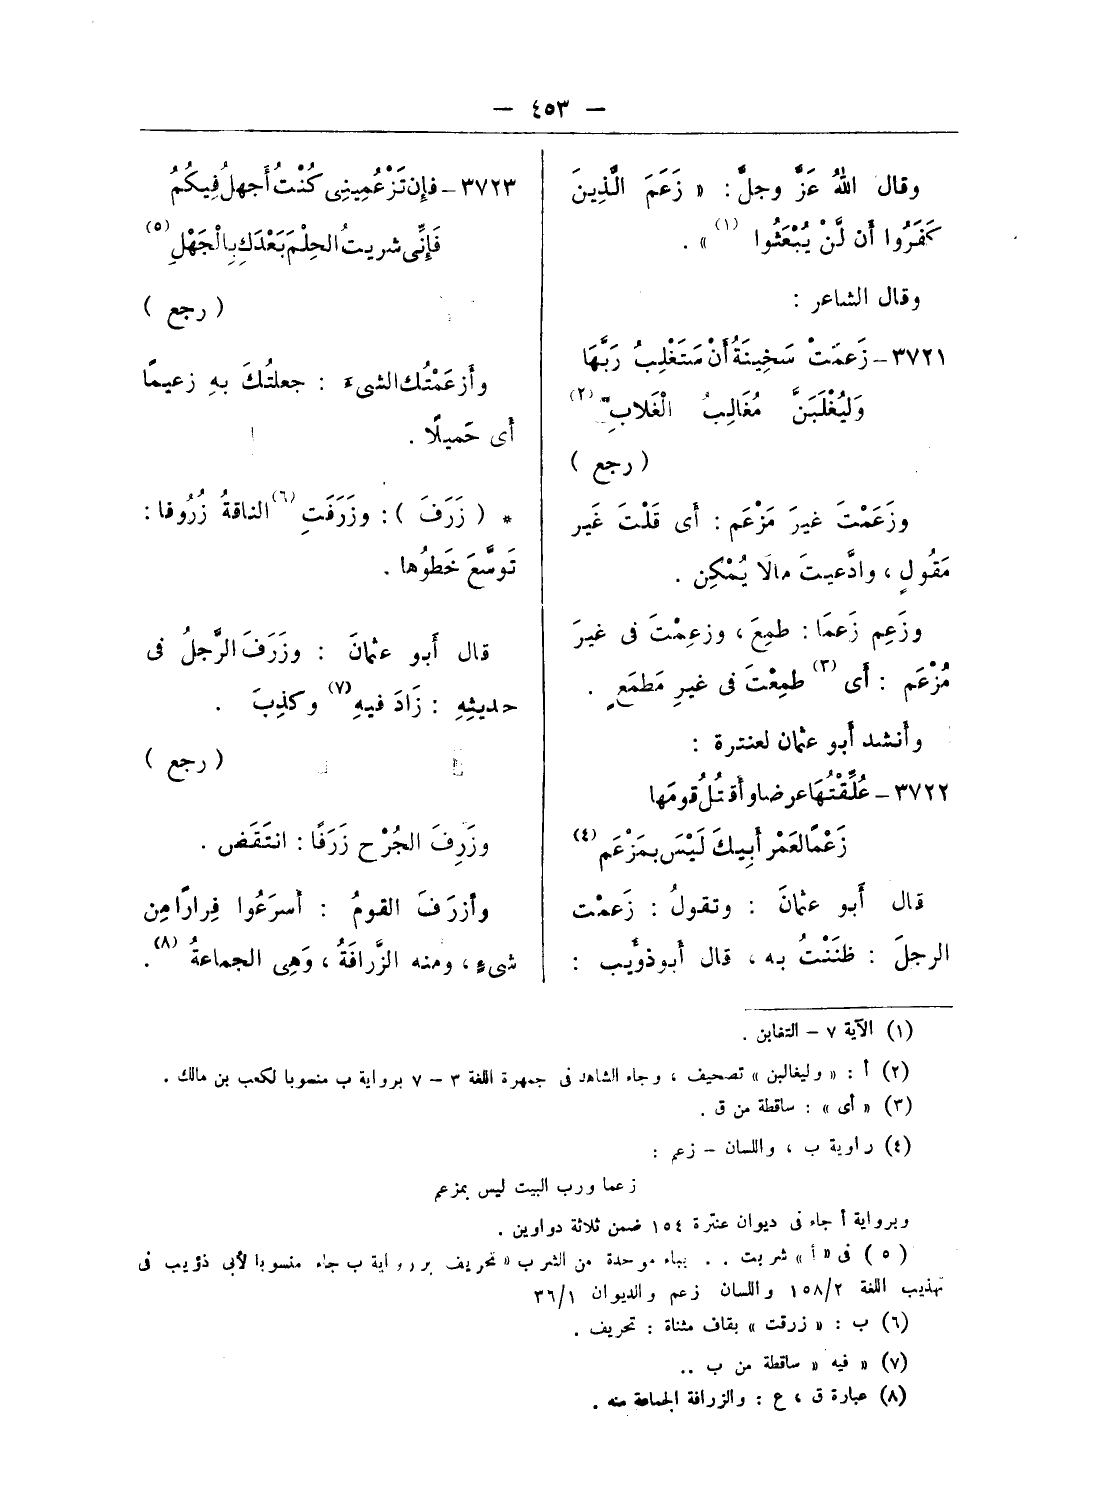 — ٤٥٣ —
وقال اللهُ عَزَّ وجلَّ : « زَعَمَ الَّذِينَ
كَفَرُوا أَن لَّنْ يُبْعَثُوا (١) » .
وقال الشاعر :
٣٧٢١ – زَعمَتْ سَخِينَةُ أَنْ سَتَغْلِبُ رَبَّهَا
وَليُغْلَبَنَّ مُغَالِبُ الْغَلابِ (٢)
( رجع )
وزَعَمْتَ غيرَ مَزْعَم : أى قَلْتَ غَير
مَقُولٍ ، وادَّعيتَ مالَا يُمْكِن .
وزَعِم زَعمَا : طمِعَ ، وزعِمْتَ فى غيرَ
مُزْعَم : أَى (٣) طمِعْتَ فى غيرِ مَطمَعٍ .
وأَنشد أَبو عثمان لعنترة :
٣٧٢٢ – عُلِّقْتُهَا عرضا وأقتُلُ قومَها
زَعْمًا لعَمْر أَبِيكَ لَيْسَ بمَزْعَم (٤)
قال أَبو عثمانَ : وتقولُ : زَعمْت
الرجلَ : ظنَنْتُ به ، قال أَبوذؤَيب :
٣٧٢٣ – فإِن تَزْعُمِينِى كُنْتُ أَجهلُ فِيكُمُ
فَإِنِّى شريتُ الحِلْمَ بَعْدَكِ بِالْجَهْلِ (٥)
( رجع )
وأَزعَمْتُك الشىءَ : جعلتُكَ به زعيمًا
أَى حَميلًا .
* ( زَرَفَ ) : وزَرَفَتِ (٦) الناقةُ زُرُوفا :
تَوسَّعَ خَطوُها .
قال أَبو عثمانَ : وزَرَفَ الرَّجلُ فى
حديثِهِ : زَادَ فيهِ (٧) وكذِبَ .
( رجع )
وزَرِفَ الجُرْح زَرَفًا : انتَقَض .
وأزرَفَ القومُ : أسرَعُوا فِرارًا مِن
شىءٍ ، ومنه الزَّرافَةُ ، وَهِى الجماعةُ (٨) .
(١) الآية ٧ – التغابن .
(٢) أ : « وليغالبن » تصحيف ، وجاء الشاهد فى جمهرة اللغة ٣ – ٧ برواية ب منسوبا لكعب بن مالك .
(٣) « أى » : ساقطة من ق .
(٤) رواية ب ، واللسان – زعم :
زعما ورب البيت ليس بمزعم
وبرواية أ جاء فى ديوان عنترة ١٥٤ ضمن ثلاثة دواوين .
( ٥ ) فى « أ » شربت . . بباء موحدة من الشرب « تحريف برواية ب جاء منسوبا لأبى ذؤيب فى
تهذيب اللغة ١٥٨/٢ واللسان زعم والديوان ٣٦/١
(٦) ب : « زرقت » بقاف مثناة : تحريف .
(٧) « فيه » ساقطة من ب ..
(٨) عبارة ق ، ع : والزرافة الجماعة منه .